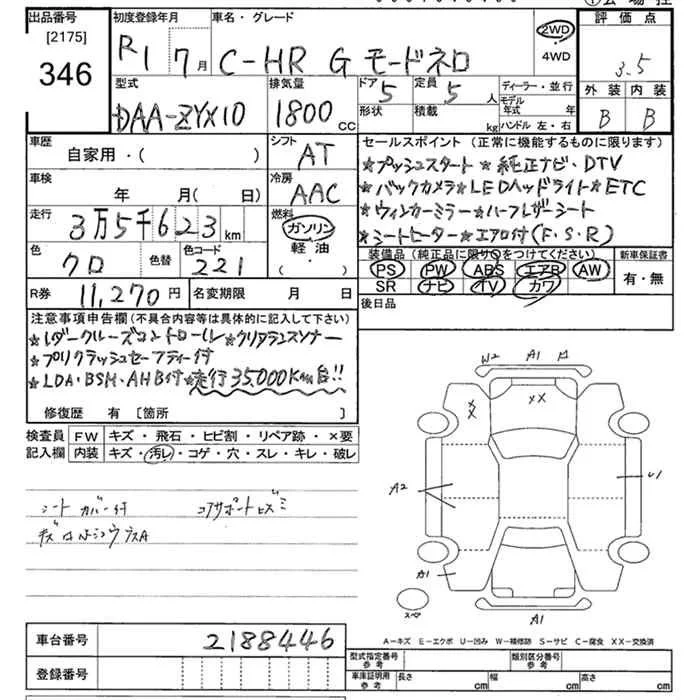 出品番号 初度登録年月 車名・グレード 評価点
[2175]
346
R1 7月 C-HR G モードネロ 2WD ・ 4WD 3.5
外装 内装
B B
型式 排気量 ドア 定員 ディーラー・並行
DAA-ZYX10 1800 CC 5 5人 モデル年式 年
形状 積載 kg ハンドル 左・右
車歴 シフト セールスポイント(正常に機能するものに限ります)
自家用・( ) AT ★プッシュスタート★純正ナビ・DTV
車検 冷房 ★バックカメラ★LEDヘッドライト★ETC
年 月(日) AAC ★ウィンカーミラー★ハーフレザーシート
走行 燃料 ★シートヒーター★エアロ付(F・S・R)
3万5千623km ガソリン
軽油
( ・ )
色 色替 色コード 装備品(純正品に限り○をつけてください) 新車保証書
クロ 221 PS PW ABS エアB AW 有・無
SR ナビ TV カワ
R券 11,270円 名変期限 月 日 後日品
注意事項申告欄(不具合内容等は具体的に記入して下さい)
★レダークルーズコントロール★クリアランスソナー
★プリクラッシュセーフティー付
★LDA・BSM・AHB付★走行35,000Km台!!
修復歴 有 [箇所 ]
検査員 FW キズ・飛石・ヒビ割・リペア跡・×要
記入欄 内装 キズ・汚レ・コゲ・穴・スレ・キレ・破レ
シートカバー付 コアサポートヒズミ
W2 A1
XX XX
A2 U1
A1 A1
スペア
A-キズ E-エクボ U-凹み W-補修跡 S-サビ C-腐食 XX-交換済
車台番号 2188446
登録番号
型式指定番号 参考 類別区分番号 参考
車庫証明用 参考 長さ cm 幅 cm 高さ cm